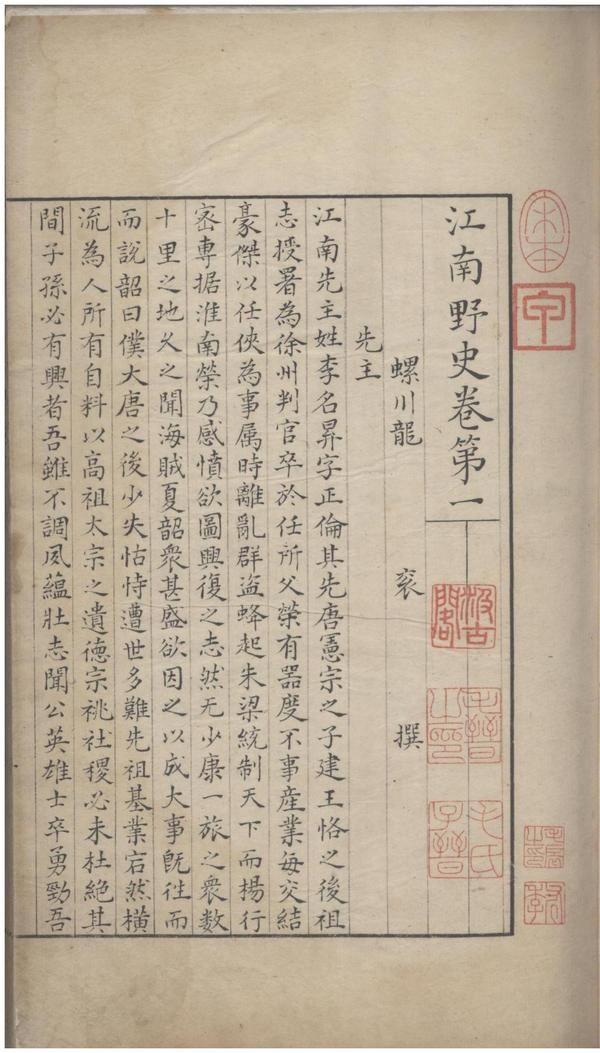 江南野史卷第一
螺川龍 衮 撰
先主
江南先主姓李名昇字正倫其先唐憲宗之子建王恪之後祖
志授署為徐州判官卒於任所父榮有器度不事産業每交結
豪傑以任俠為事属時離亂群盗蜂起朱梁統制天下而揚行
宻専据淮南榮乃感憤欲圖興復之志然无少康一旅之衆数
十里之地久之聞海賊夏韶衆甚盛欲因之以成大事既往而
而說韶曰僕大唐之後少失怙恃遭世多難先祖基業宕然横
流為人所有自料以高祖太宗之遺德宗祧社稷必未杜絶其
間子孫必有興者吾雖不調夙蘊壮志聞公英雄士卒勇勁吾
宋本
甲
汲古閣
毛晉之印
毛氏子晉